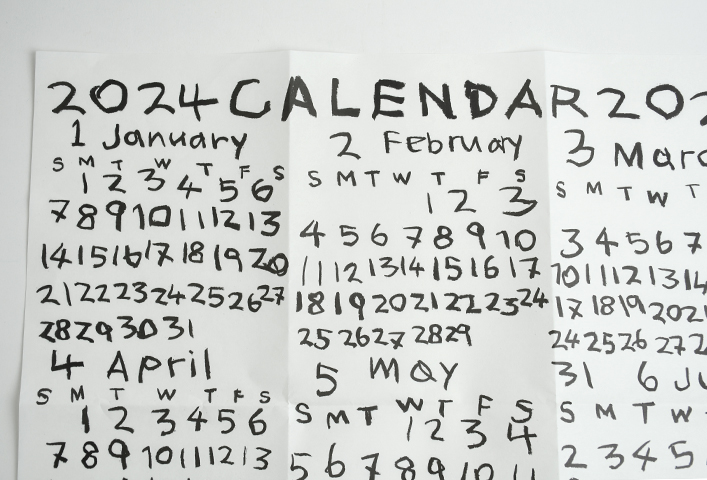 2024 CALENDAR 202
1 January
S M T W T F S
1 2 3 4 5 6
7 8 9 10 11 12 13
14 15 16 17 18 19 20
21 22 23 24 25 26 27
28 29 30 31
2 February
S M T W T F S
1 2 3
4 5 6 7 8 9 10
11 12 13 14 15 16 17
18 19 20 21 22 23 24
25 26 27 28 29
3 Marc
S M T W T
3 4 5 6 7
10 11 12 13 14
17 18 19 20 21
24 25 26 27 2
31
4 April
S M T W T F S
1 2 3 4 5 6
7 8 9 10 11 12 13
5 May
S M T W T F S
1 2 3 4
5 6 7 8 9 10 11
6 Ju
S M T W
2 3 4 5